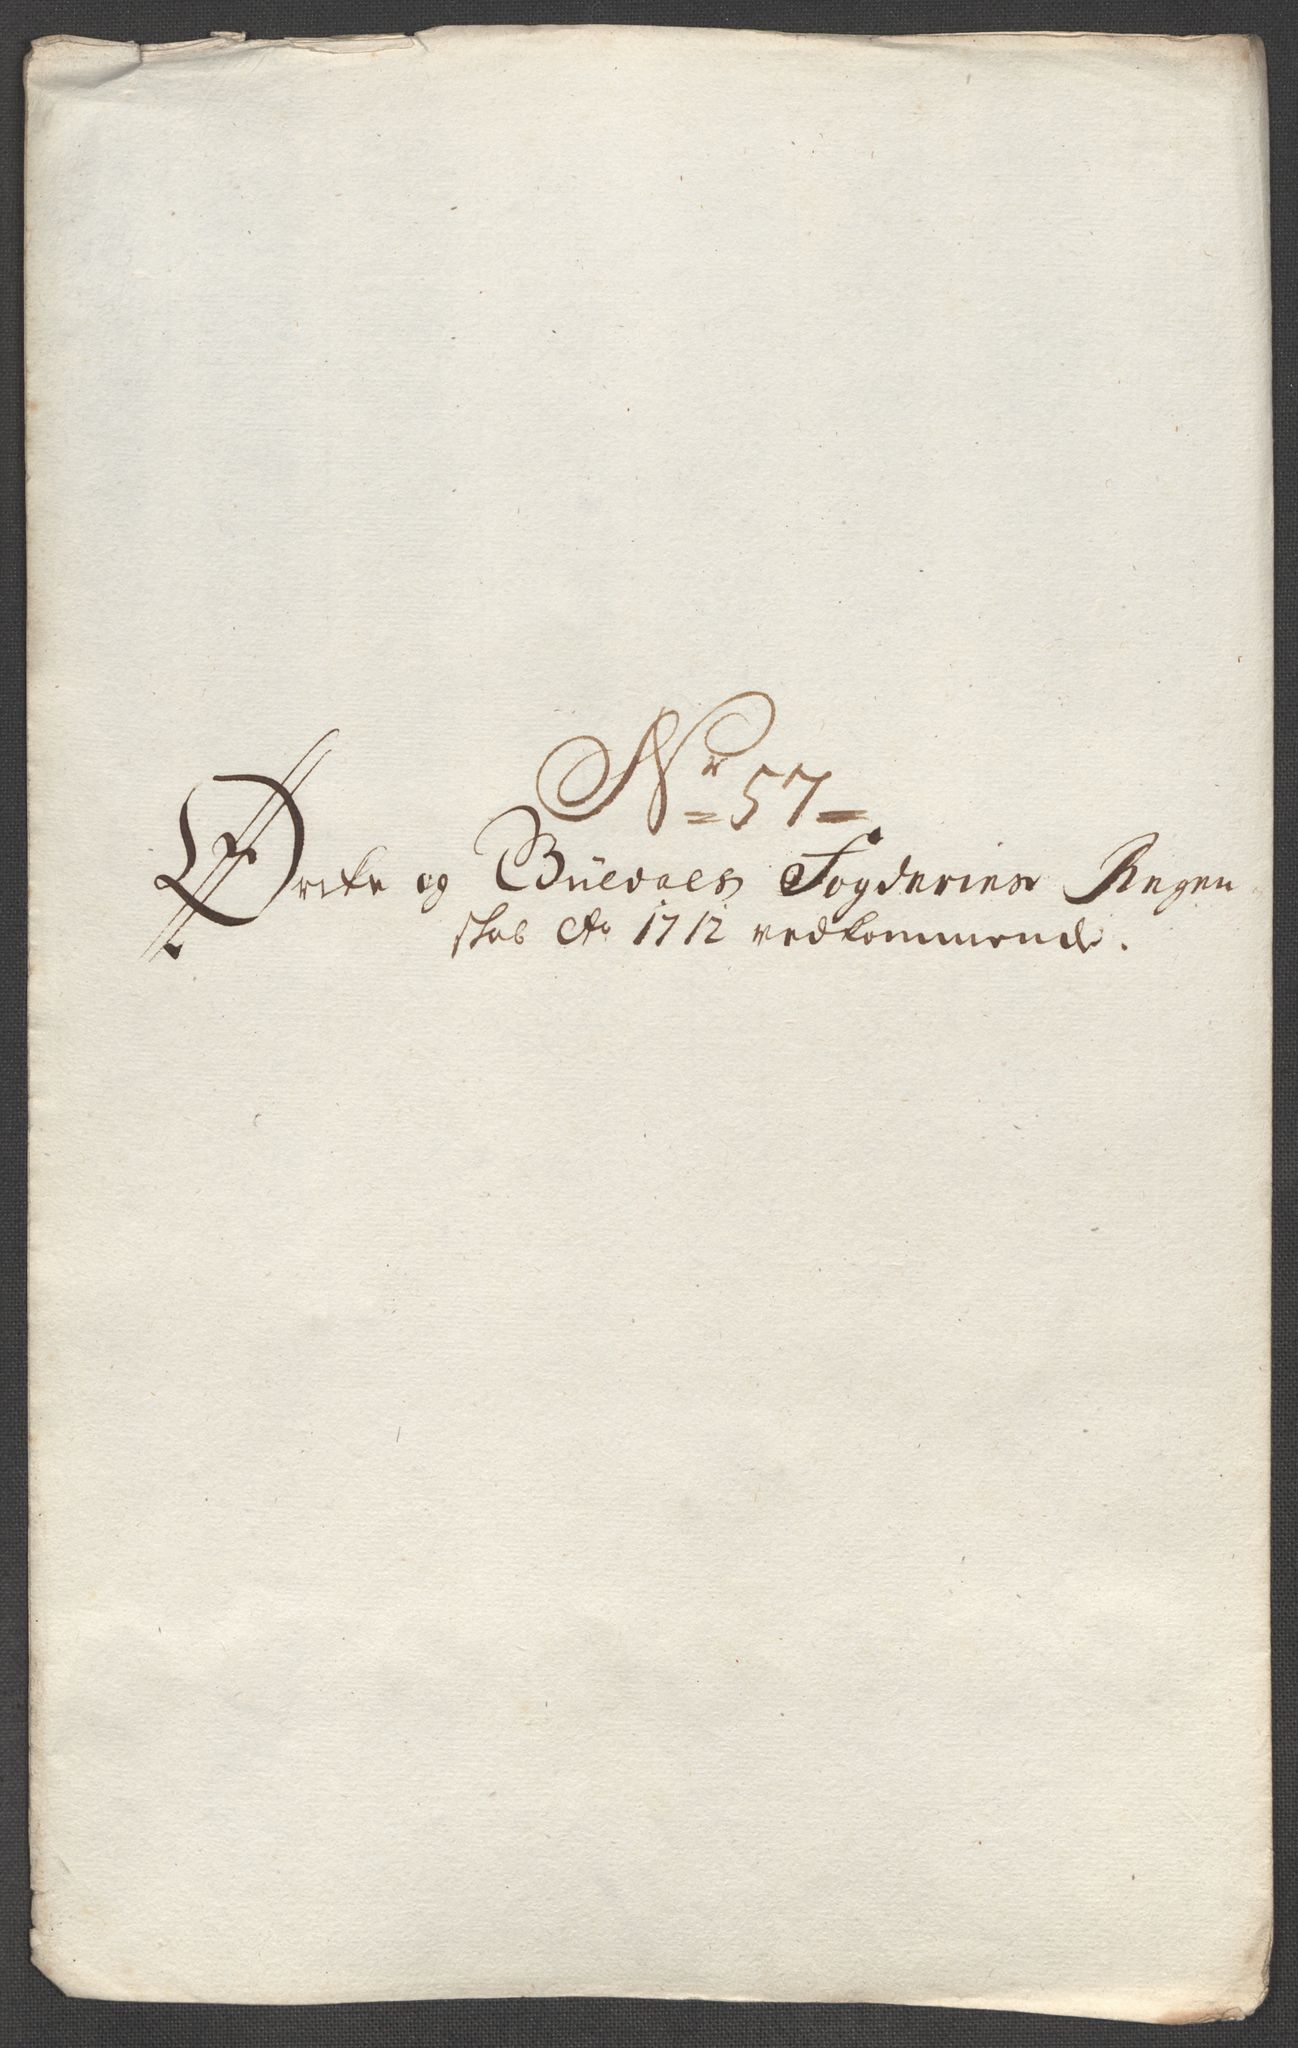 Nr 57
Orcke og Büedaels Fogderies Regen
skab Ao 1712 vedkommende.